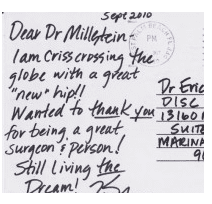 Sept 2010
Dear Dr Millstein-
I am Crisscrossing the
globe with a great
"new" hip!!
Wanted to thank you
for being a great
surgeon & person!
Still Living the
Dream!
PM
Dr Eric
DISC
13160
SUITE
MARINA
9